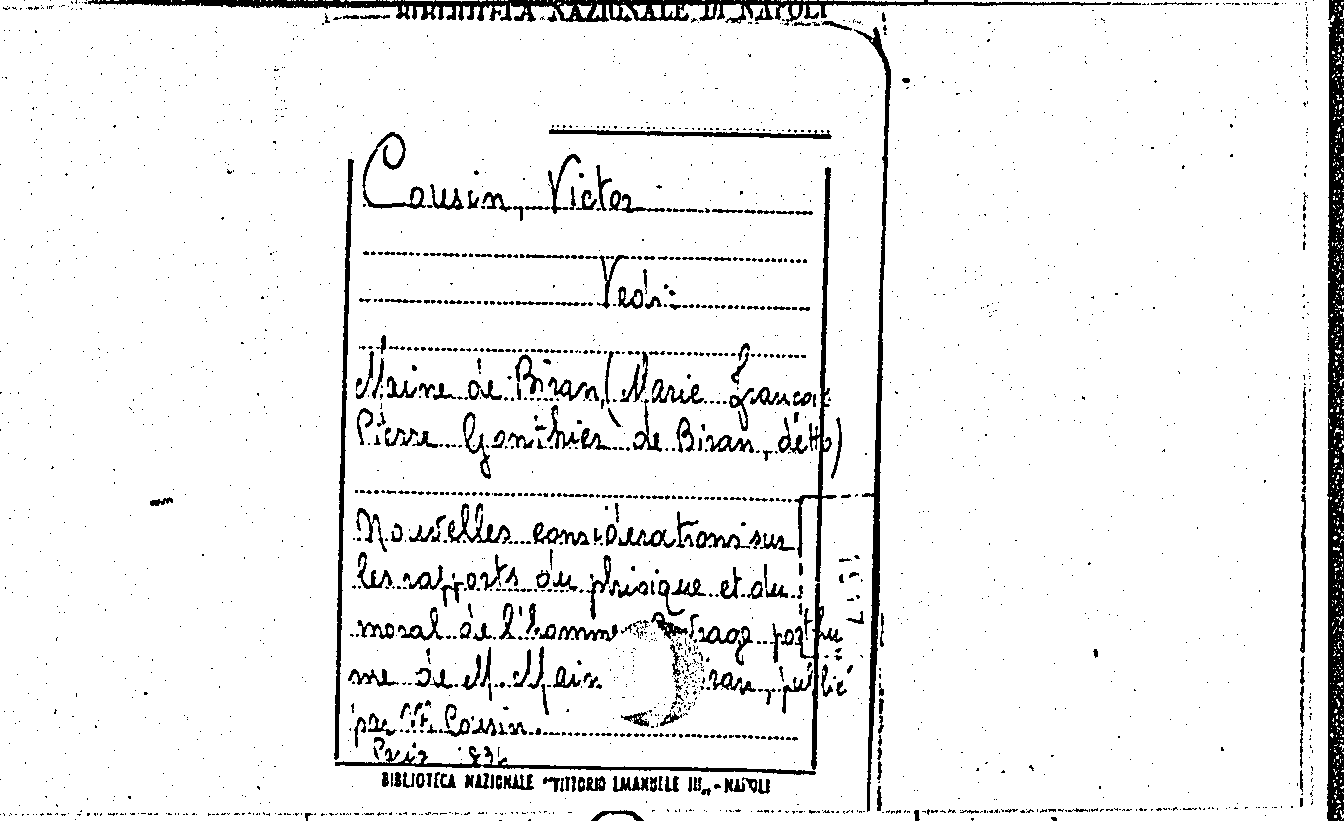 BIBLIOTECA NAZIONALE DI NAPOLI
Cousin, Victor
Vedi:
Maine de Biran, (Marie François
Pierre Gonthier de Biran, détto)
Nouvelles considerations sur
les rapports du phisique et du
moral de l'homme posthu
me de M. Main iran, publié
par M. Cousin.
Paris 1834
BIBLIOTECA NAZIONALE "VITTORIO EMANUELE III" - NAPOLI